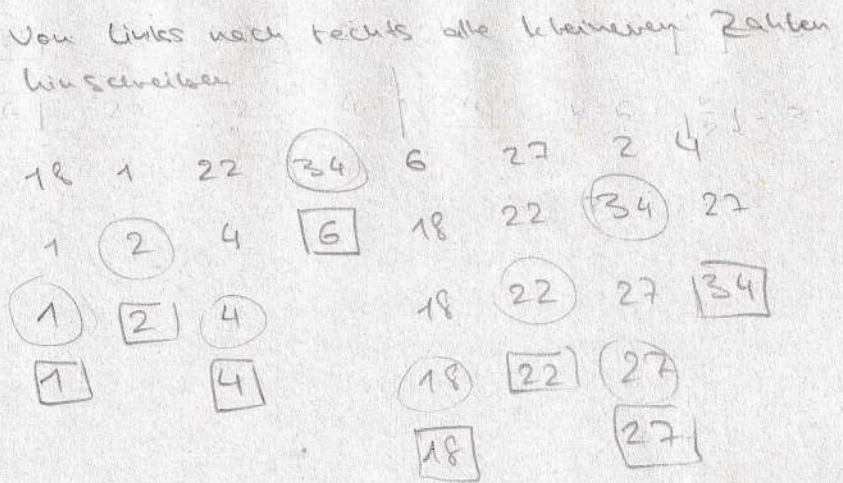 Von links nach rechts alle kleineren Zahlen
hinschreiben
18 1 22 34 6 27 2 4
1 2 4 6 18 22 34 27
1 2 4 18 22 27 34
1 4 18 22 27
18 27